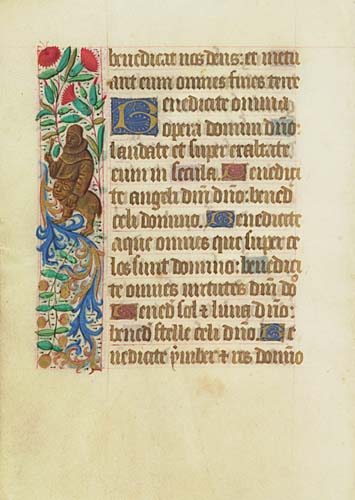 benedicat nos deus: et metu
ant eum omnes fines terre
Benedicite omnia
opera domini dno:
laudate et super exaltate
eum in secula. Benedici
te angeli dni dno: bened
celi domino. Benedicite
aque omnes que super ce
los sunt domino: benedici
te omnes virtutes dni do
Bened sol & luna dno:
bened stelle celi dno. Be
nedicite ymber & ros domino